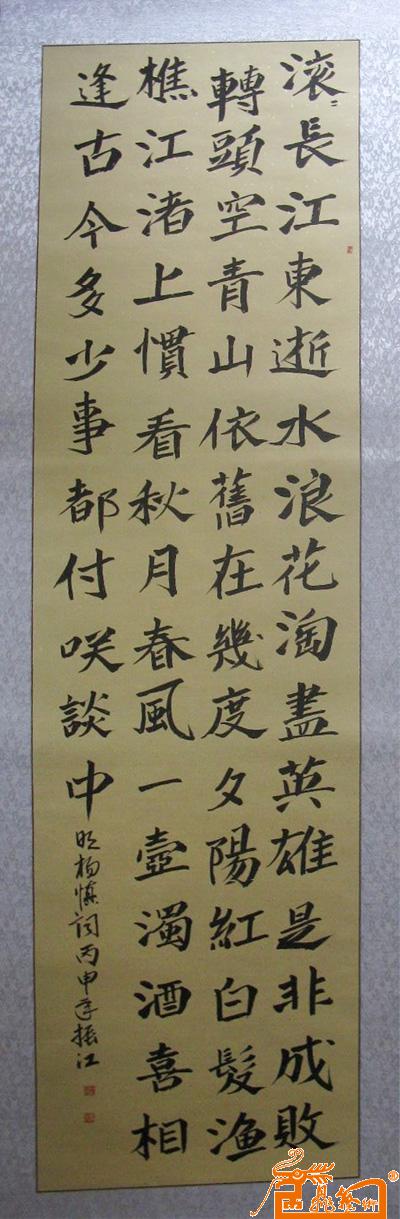 滚〻長江東逝水浪花淘盡英雄是非成敗
轉頭空青山依舊在幾度夕陽紅白髮渔
樵江渚上慣看秋月春風一壺濁酒喜相
逢古今多少事都付咲談中
明杨慎词丙申年振江